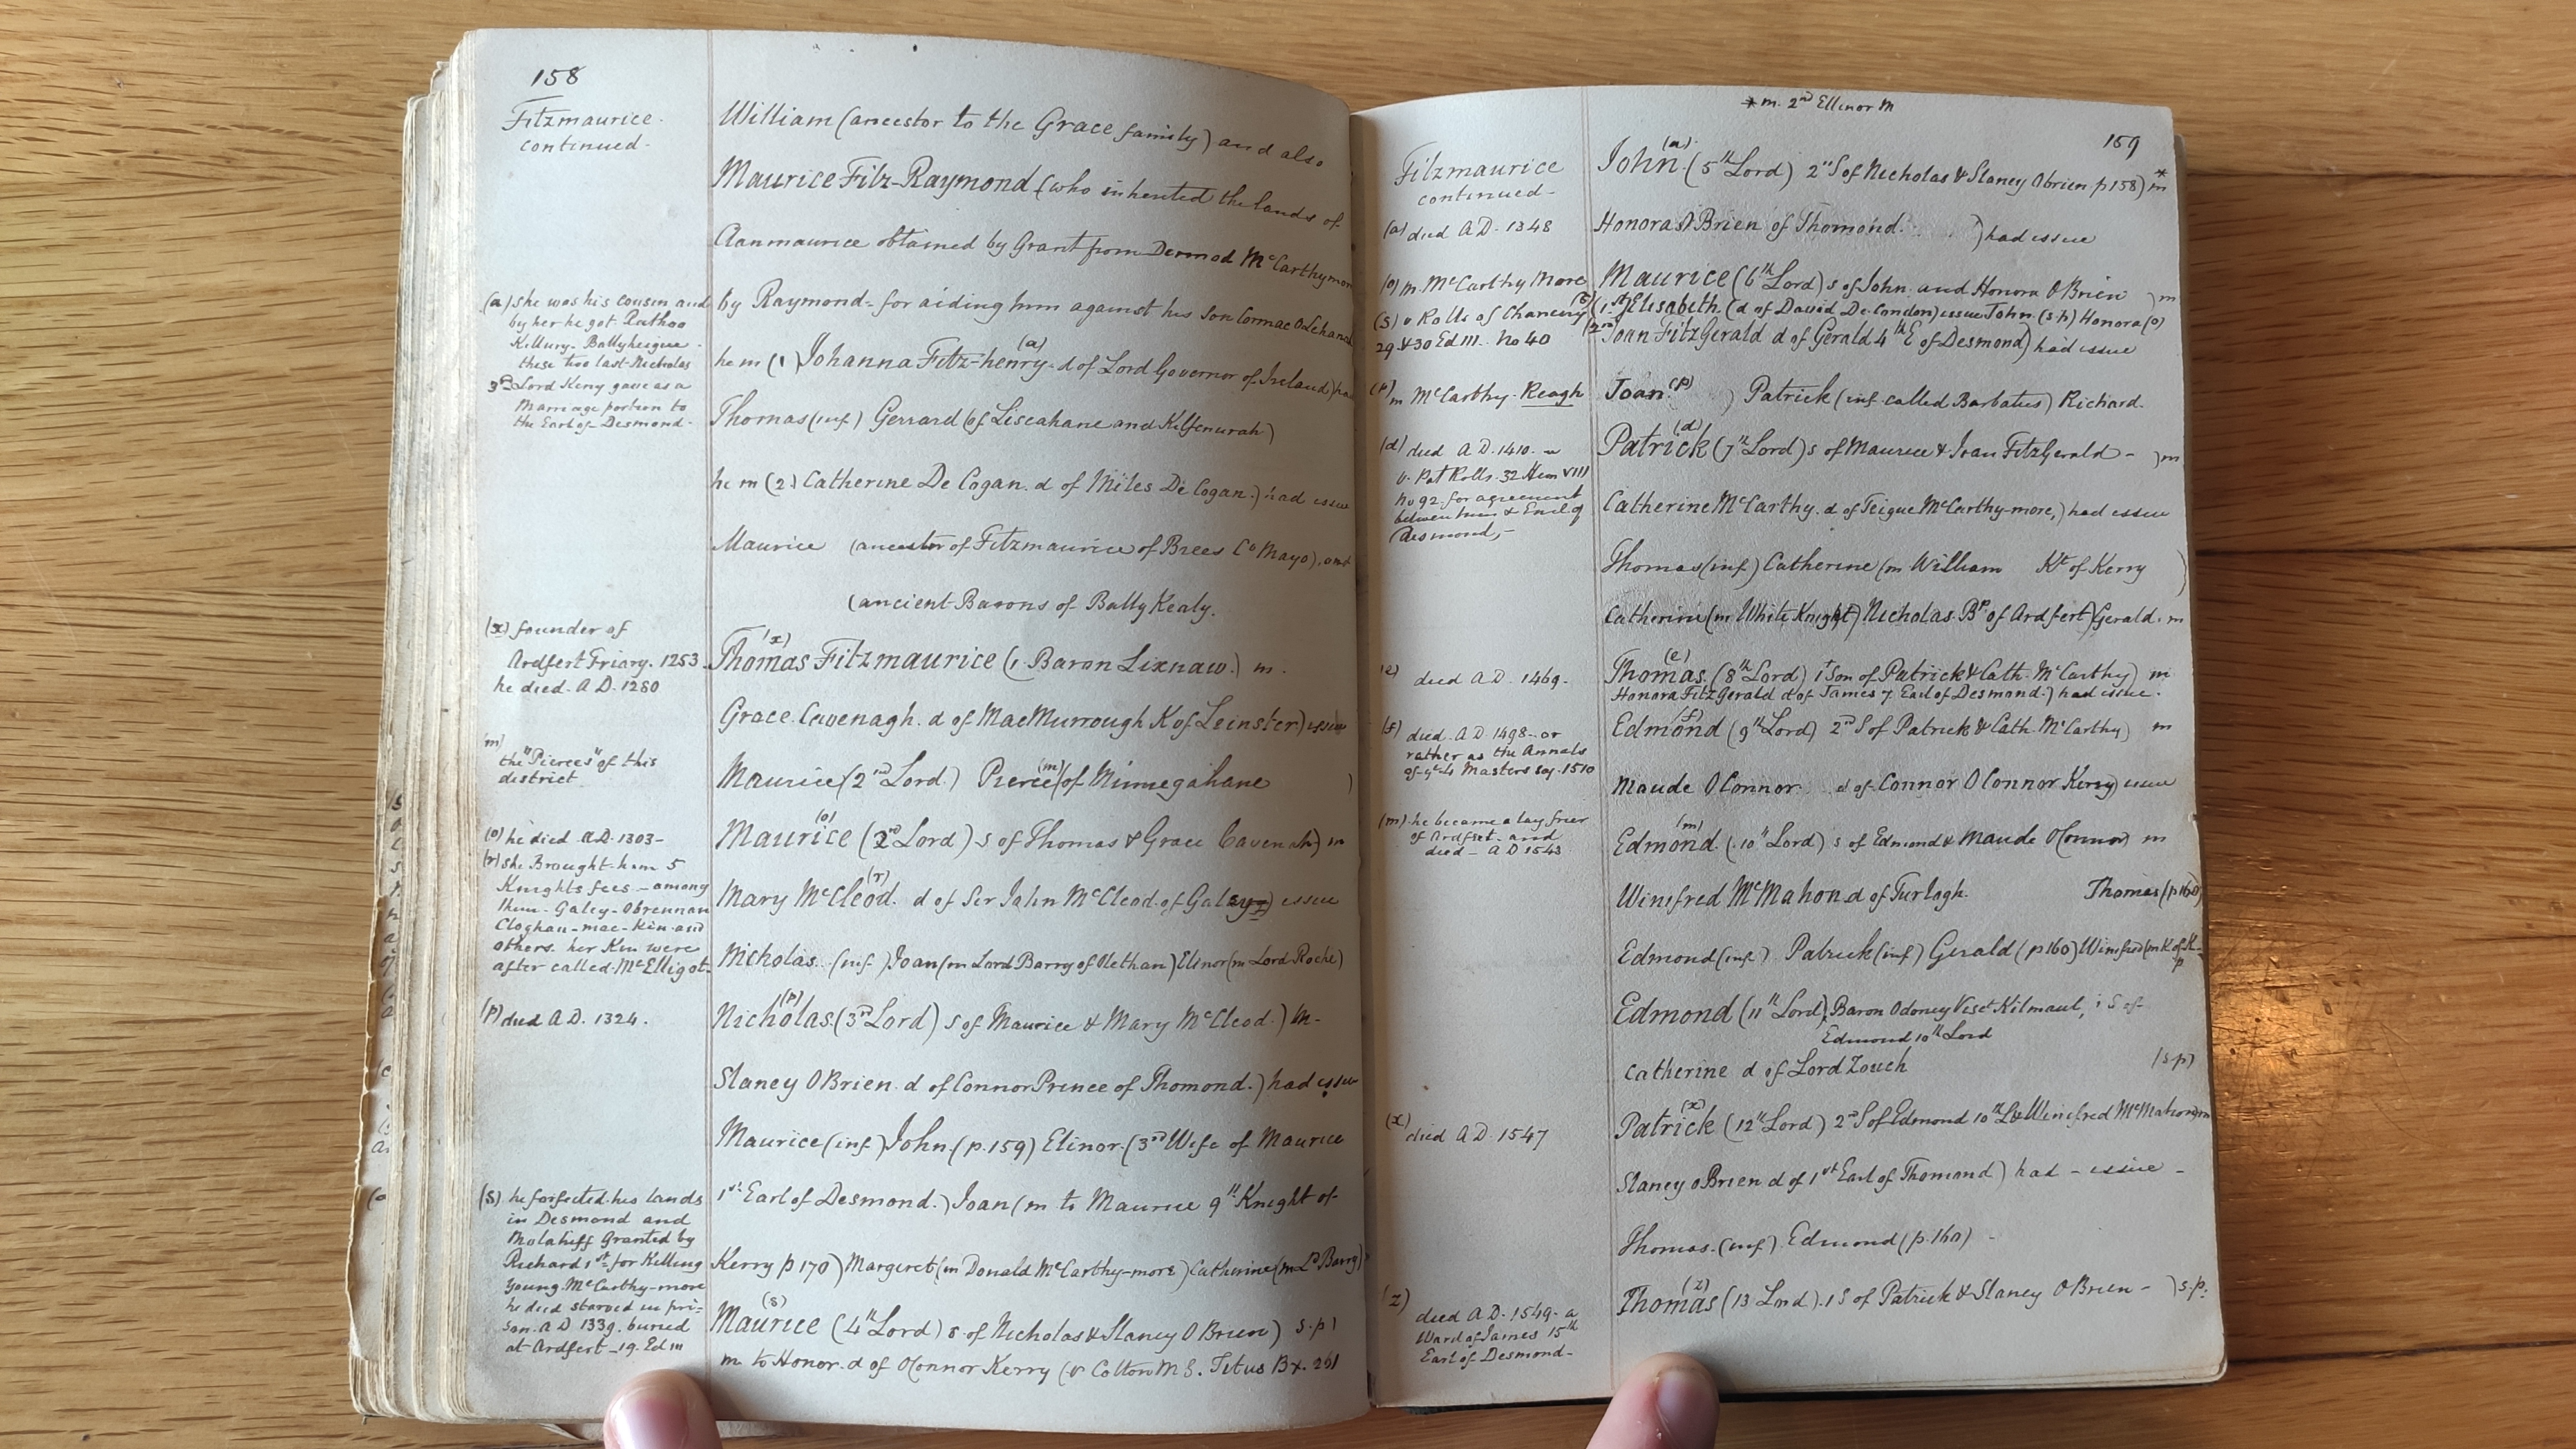 158
Fitzmaurice
continued-
William (ancestor to the Grace family) and also
Maurice Fitz-Raymond (who inherited the lands of
Clanmaurice obtained by Grant from Dermod McCarthymore
(a) she was his cousin and
by her he got Rathoo
Killury- Ballyhesgue-
these two last Nicholas
3rd Lord Kerry gave as a
Marriage portion to
the Earl of Desmond-
by Raymond- for aiding him against his Son Cormac
he m (1) Johanna Fitz-henry (a) d of Lord Governor of Ireland) had
Thomas (inf) Gerrard (of Liscahane and Kilfenurah)
he m (2) Catherine De Cogan. d of Miles De Cogan.) had issue
Maurice (ancestor of Fitzmaurice of Brees Co Mayo), and
(ancient Barons of BallyKealy.
(x) founder of
Ardfert Friary. 1253.
he died. A.D. 1280
Thomas (x) Fitzmaurice (1. Baron Lixnaw.) m.
Grace Cavenagh. d of MacMurrough K of Leinster) issue
(m)
the "Pierces" of this
district
Maurice (2nd Lord.) Pierce (m) (of Minnegahane )
(o) he died A.D. 1303-
Maurice (o) (2nd Lord) s of Thomas & Grace Cavenah) m
(r) she Brought him 5
Knights fees - among
them- Galey- Obrennan
Cloghan-mac-Kin and
others. her Kin were
after called McElligot-
Mary McCleod (r). d of Sir John McCleod of Galey) issue
Nicholas. (inf.) Joan (m Lord Barry of Olethan) Elinor (m Lord Roche)
(p) died A.D. 1324.
Nicholas (p) (3rd Lord) s of Maurice & Mary McCleod.) m-
Slaney OBrien. d of Connor Prince of Thomond.) had issue
Maurice (inf) John (p. 159) Elinor (3rd Wife of Maurice
1st Earl of Desmond.) Joan (m to Maurice 9th Knight of
Kerry p 170) Margaret (m Donald McCarthy-more) Catherine (m Ld Barry)
(s) he forfeited his lands
in Desmond and
Molahiff Granted by
Richard 1st for Killing
Young McCarthy-more
he died starved in pri-
son. A D 1339. buried
at Ardfert -19. Ed III
Maurice (s) (4th Lord) s. of Nicholas & Slaney O Brien) s.p)
m to Honor. d of OConnor Kerry (v Cotton M S. Titus Bx. 261
* m. 2nd Ellinor M
159
Fitzmaurice
continued-
John (a). (5th Lord) 2nd S of Nicholas & Slaney Obrien p 158) m *
(a) died A.D. 1348
Honora O Brien of Thomond. ) had issue
(o) m. McCarthy More
Maurice (6th Lord) s of John and Honora O Brien ) m
(s) v Rolls of Chancery
29 & 30 Ed III. No 40
(1st Elisabeth (d of David De London) issue John (s.p) Honora (o)
(2nd Joan FitzGerald d of Gerald 4th E of Desmond) had issue
(p) m McCarthy-Reagh
Joan (p) ) Patrick (inf called Barbatus) Richard.
(d) died A D. 1410. -
v. Pat Rolls. 32 Hen VIII
No 92. for agreement
between him & Earl of
Desmond,-
Patrick (d) (7th Lord) s of Maurice & Joan FitzGerald - ) m
Catherine McCarthy. d of Teigue McCarthy-more,) had issue
Thomas (inf) Catherine (m William Kt of Kerry )
Catherine (m White Knight) Nicholas. Bp of Ardfert) Gerald. m
(e) died A.D. 1469.
Thomas (e). (8th Lord) 1st Son of Patrick & Cath. McCarthy) m
Honora FitzGerald d of James 7 Earl of Desmond.) had issue.
(f) died. A.D. 1498- or
rather as the Annals
of ye 4 Masters say. 1510
Edmond (f) (9th Lord) 2nd S of Patrick & Cath. McCarthy) m
Maude OConnor d of Connor O Connor Kerry) issue
(m) he became a lay frier
of Ardfert- and
died- A D 1543
Edmond (m). (10th Lord) s of Edmond & Maude OConnor) m
Winifred McMahon d of Turlogh. Thomas (p 160)
Edmond (inf) Patrick (inf) Gerald (p 160) Winifred (m K of K-
p
Edmond (11th Lord) Baron Odoney Visct Kilmaul, 1 S of
Edmond 10th Lord
Catherine d of Lord Zouch (s.p)
(x) died A.D. 1547
Patrick (x) (12th Lord) 2nd S of Edmond 10th Ld & Winifred McMahon) m
Slaney OBrien d of 1st Earl of Thomond) had - issue -
Thomas. (inf) Edmond (p. 160) -
(z)
died A.D. 1549. a
Ward of James 15th
Earl of Desmond-
Thomas (z) (13 Lord). 1 S of Patrick & Slaney O Brien - ) s.p.